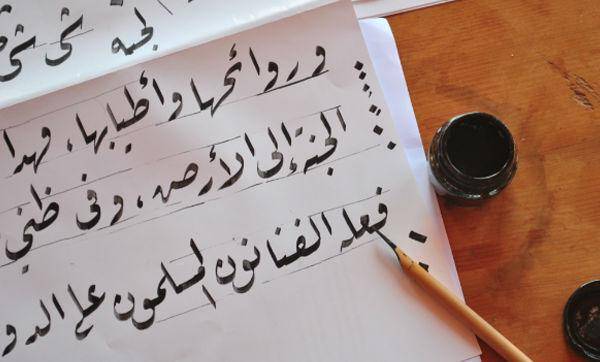 الجنة شى شى
وروائحها وأطيابها، فهذا
الجنة إلى الأرض، وفى ظني
فعله الفنانون المسلمون على الدو